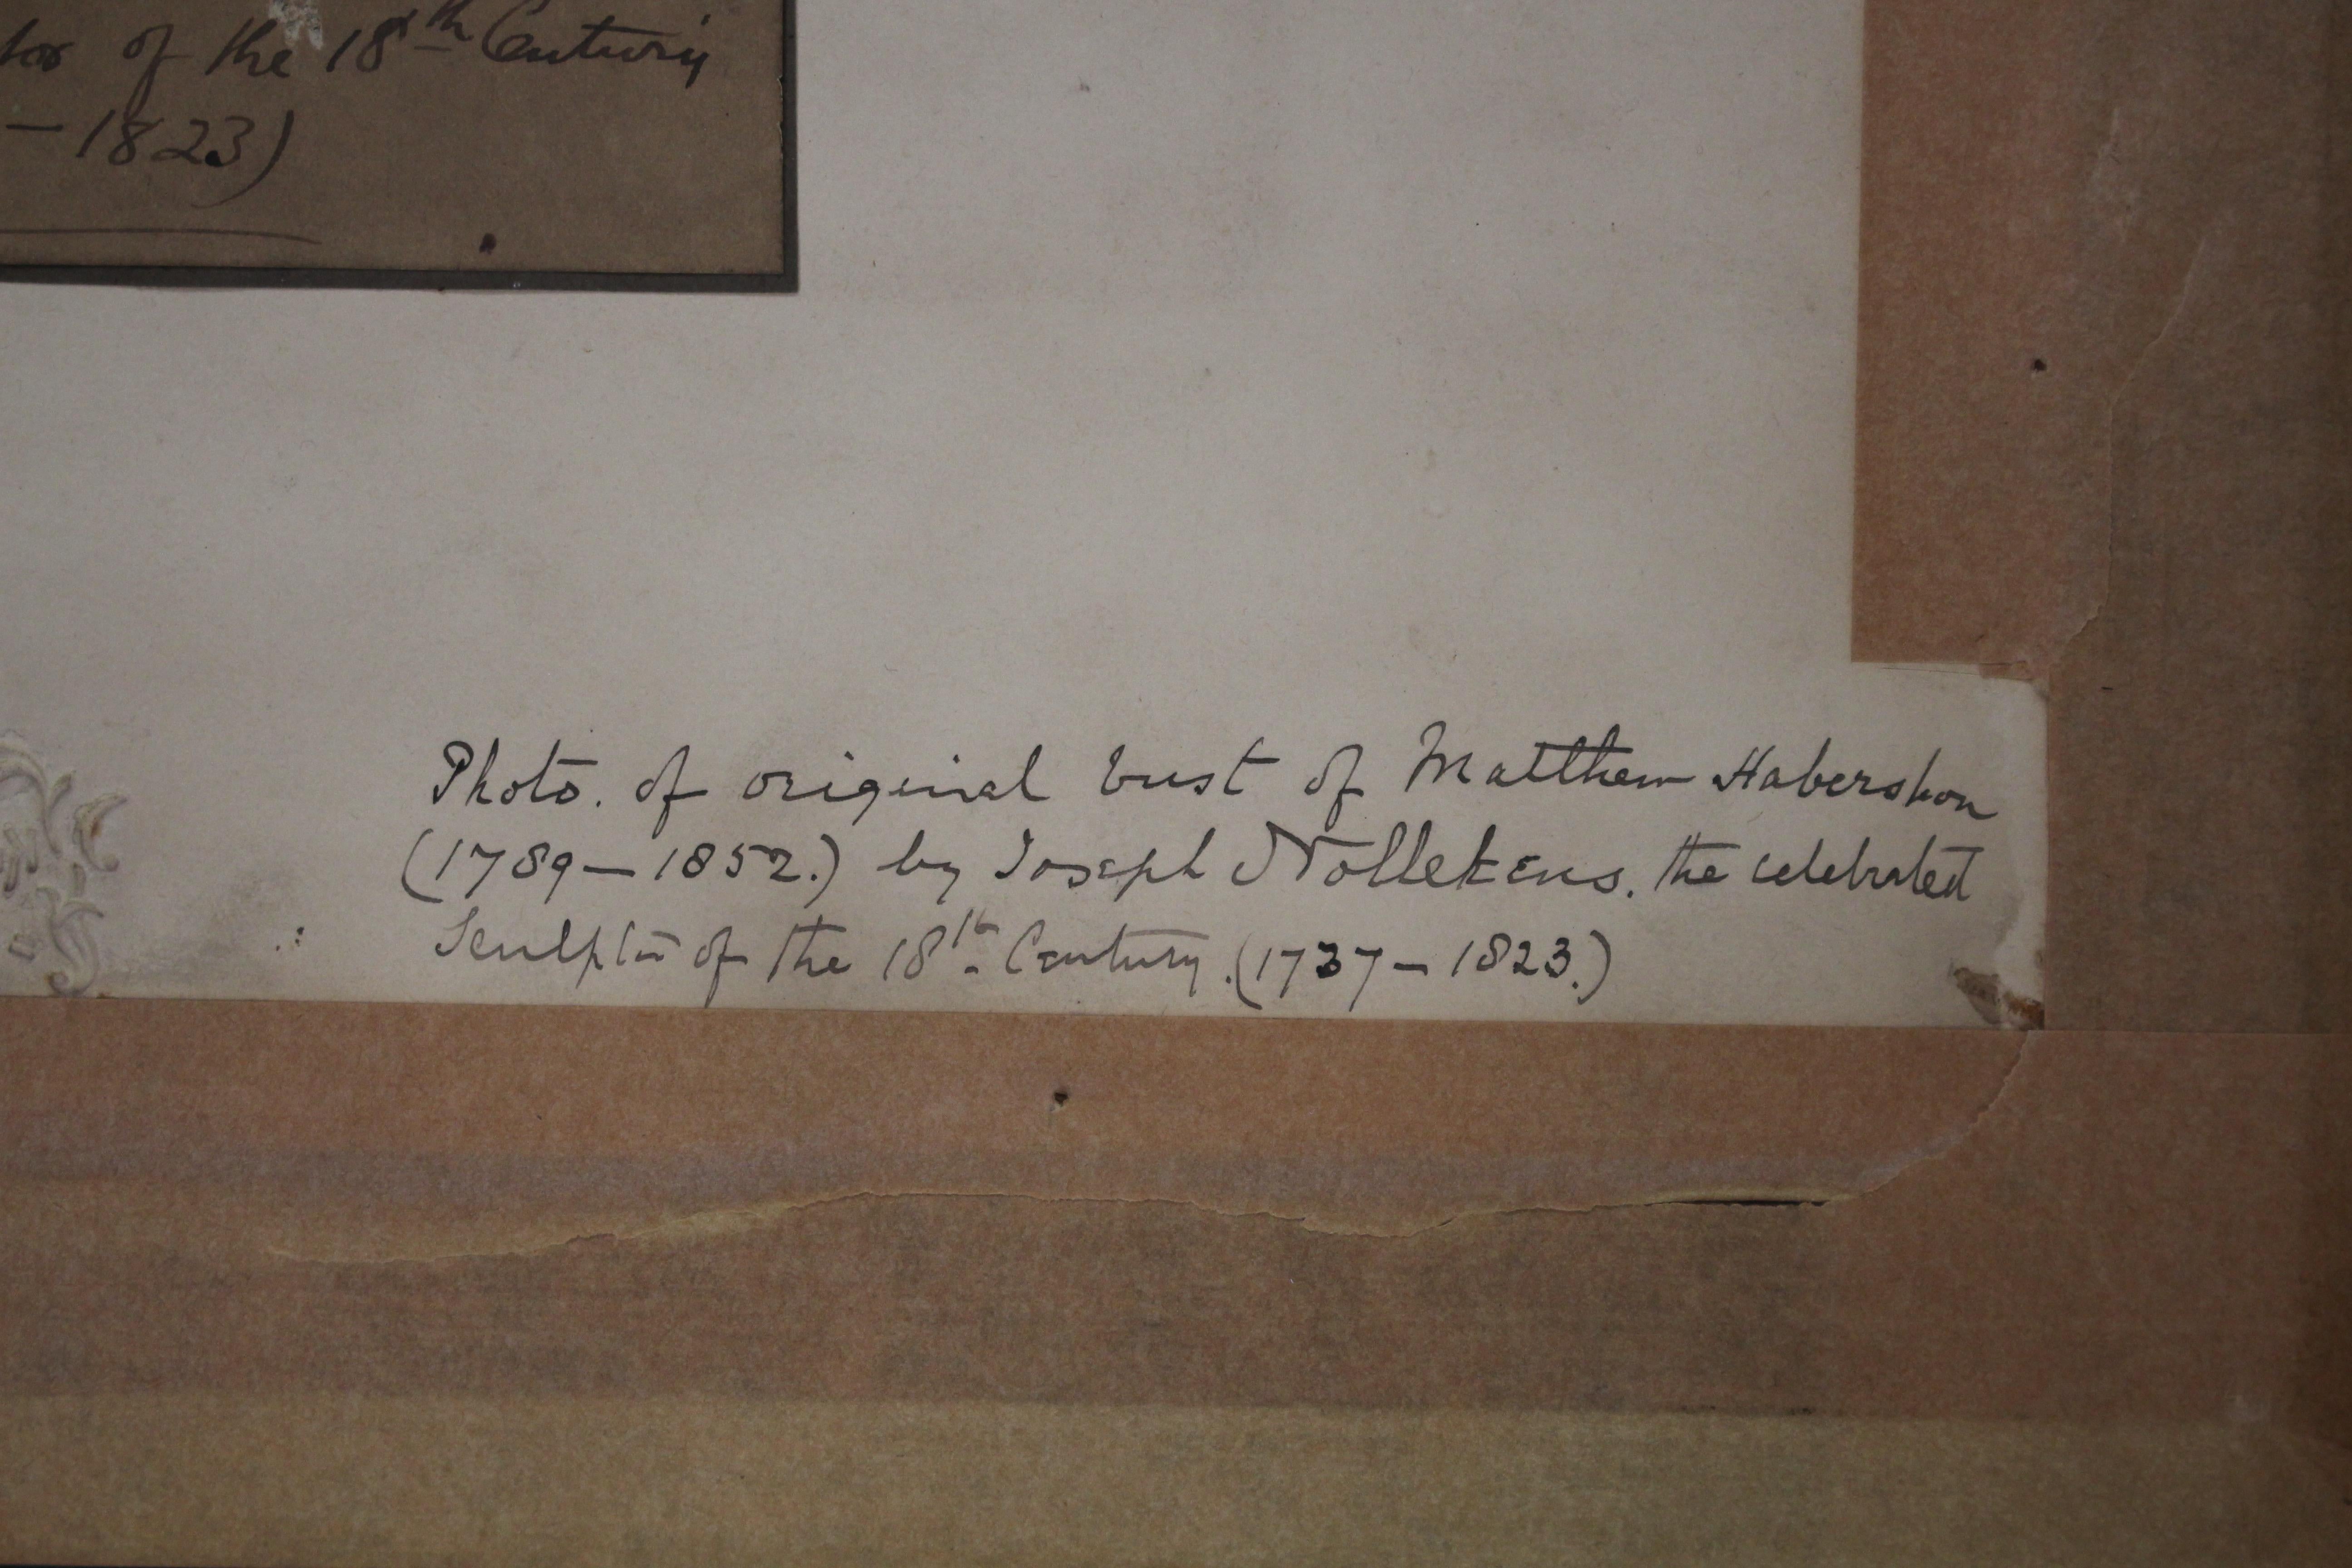 of the 18th Century
- 1823)
Photo. of original bust of Matthew Habershon
(1789 - 1852.) by Joseph Nollekens. the celebrated
Sculptor of the 18th Century. (1737 - 1823.)